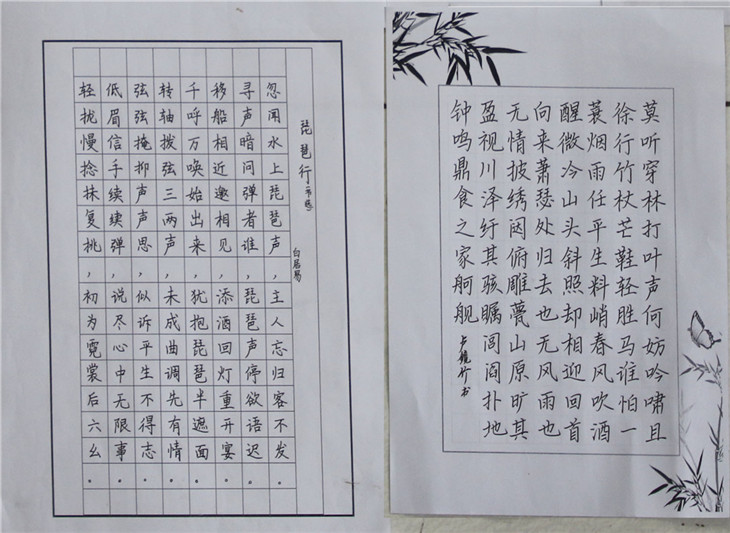 琵琶行(节选)
白居易
忽闻水上琵琶声，主人忘归客不发.
寻声暗问弹者谁，琵琶声停欲语迟.
移船相近邀相见，添酒回灯重开宴.
千呼万唤始出来，犹抱琵琶半遮面.
转轴拨弦三两声，未成曲调先有情.
弦弦掩抑声声思，似诉平生不得志.
低眉信手续续弹，说尽心中无限事.
轻拢慢捻抹复挑，初为霓裳后六幺.
莫听穿林打叶声何妨吟啸且
徐行竹杖芒鞋轻胜马谁怕一
蓑烟雨任平生料峭春风吹酒
醒微冷山头斜照却相迎回首
向来萧瑟处归去也无风雨也
无情披绣闼俯雕甍山原旷其
盈视川泽纡其骇瞩闾阎扑地
钟鸣鼎食之家舸舰
竹书